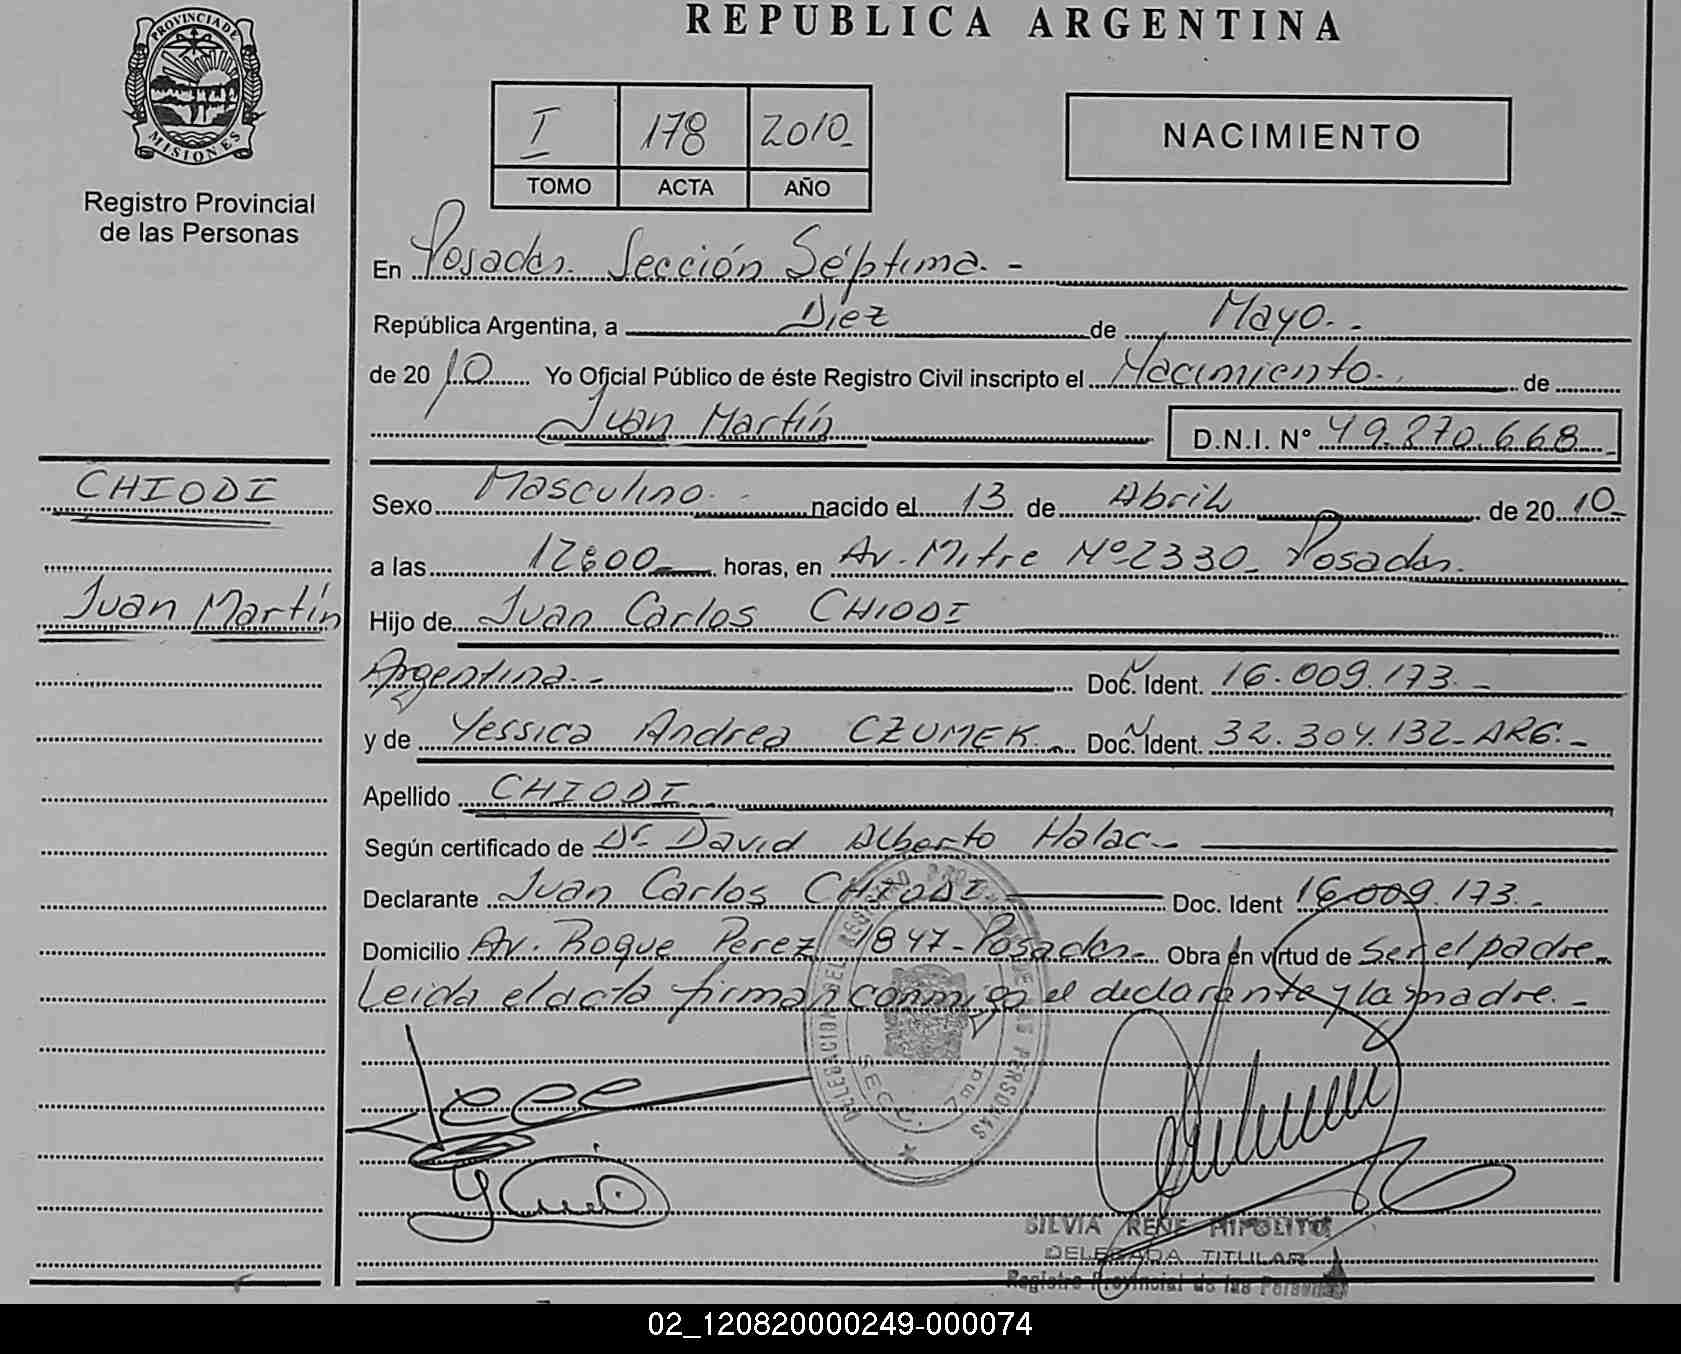 REPUBLICA ARGENTINA
PROVINCIA DE
MISIONES
Registro Provincial
de las Personas
I 178 2010
TOMO ACTA AÑO
NACIMIENTO
En Posadas. Sección Séptima. -
República Argentina, a Diez de Mayo. -
de 2010 Yo Oficial Público de éste Registro Civil inscripto el Nacimiento. de
Juan Martín
D.N.I. Nº 49.870.668
CHIODI
Juan Martín
Sexo Masculino. nacido el 13 de Abril de 2010
a las 12:00 horas, en Av. Mitre Nº 2330 Posadas.
Hijo de Juan Carlos CHIODI
Argentina. - Doc. Ident. 16.009.173. -
y de Yessica Andrea CZUMEK Doc. Ident. 32.304.132 - ARG. -
Apellido CHIODI
Según certificado de Dr. David Alberto Halac -
Declarante Juan Carlos CHIODI Doc. Ident 16.009.173. -
Domicilio Av. Roque Perez 1847 - Posadas - Obra en virtud de Ser el padre.
Leída el acta firman conmigo el declarante y la madre. -
DELEGACION DEL REGISTRO DE LAS PERSONAS
SECC. 7ma.
SILVIA RENE HIPOLITO
DELEGADA TITULAR
Registro Provincial de las Personas
02_120820000249-000074